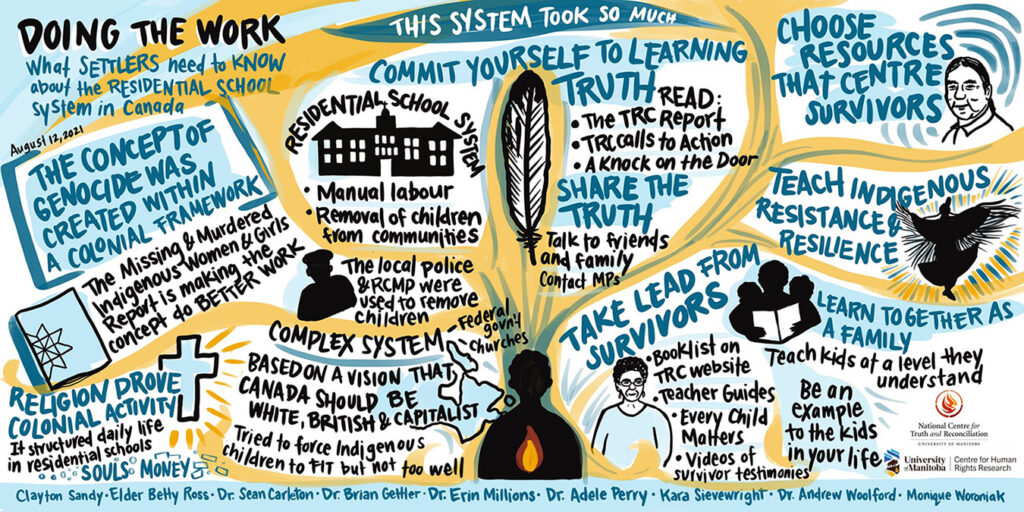 DOING THE WORK
What SETTLERS need to KNOW
about the RESIDENTIAL SCHOOL
System in Canada
August 12, 2021
THE CONCEPT OF
GENOCIDE WAS
CREATED WITHIN
A COLONIAL FRAMEWORK
The Missing & Murdered
Indigenous Women & Girls
Report is making the
concept do BETTER WORK
RELIGION DROVE
COLONIAL ACTIVITY
It structured daily life
in residential schools
SOULS MONEY
THIS SYSTEM TOOK SO MUCH
COMMIT YOURSELF TO LEARNING
TRUTH
READ:
• The TRC Report
• TRC calls to Action
• A Knock on the Door
SHARE THE
TRUTH
Talk to friends
and family
Contact MPs
RESIDENTIAL SCHOOL SYSTEM
• Manual labour
• Removal of children
from communities
The local police
& RCMP were
used to remove
children
COMPLEX SYSTEM
- Federal
gov'n't
- churches
BASED ON A VISION THAT
CANADA SHOULD BE
WHITE, BRITISH & CAPITALIST
Tried to force Indigenous
children to FIT but not too well
TAKE LEAD FROM
SURVIVORS
• Booklist on
TRC website
• Teacher Guides
• Every Child
Matters
• Videos of
survivor testimonies
CHOOSE
RESOURCES
THAT CENTRE
SURVIVORS
TEACH INDIGENOUS
RESISTANCE &
RESILIENCE
LEARN TOGETHER AS
A FAMILY
Teach kids at a level they
understand
Be an
example
to the kids
in your life
National Centre for
Truth and Reconciliation
UNIVERSITY OF MANITOBA
University
of Manitoba
Centre for Human
Rights Research
Clayton Sandy • Elder Betty Ross • Dr. Sean Carleton • Dr. Brian Gettler • Dr. Erin Millions • Dr. Adele Perry • Kara Sievewright • Dr. Andrew Woolford • Monique Woroniak